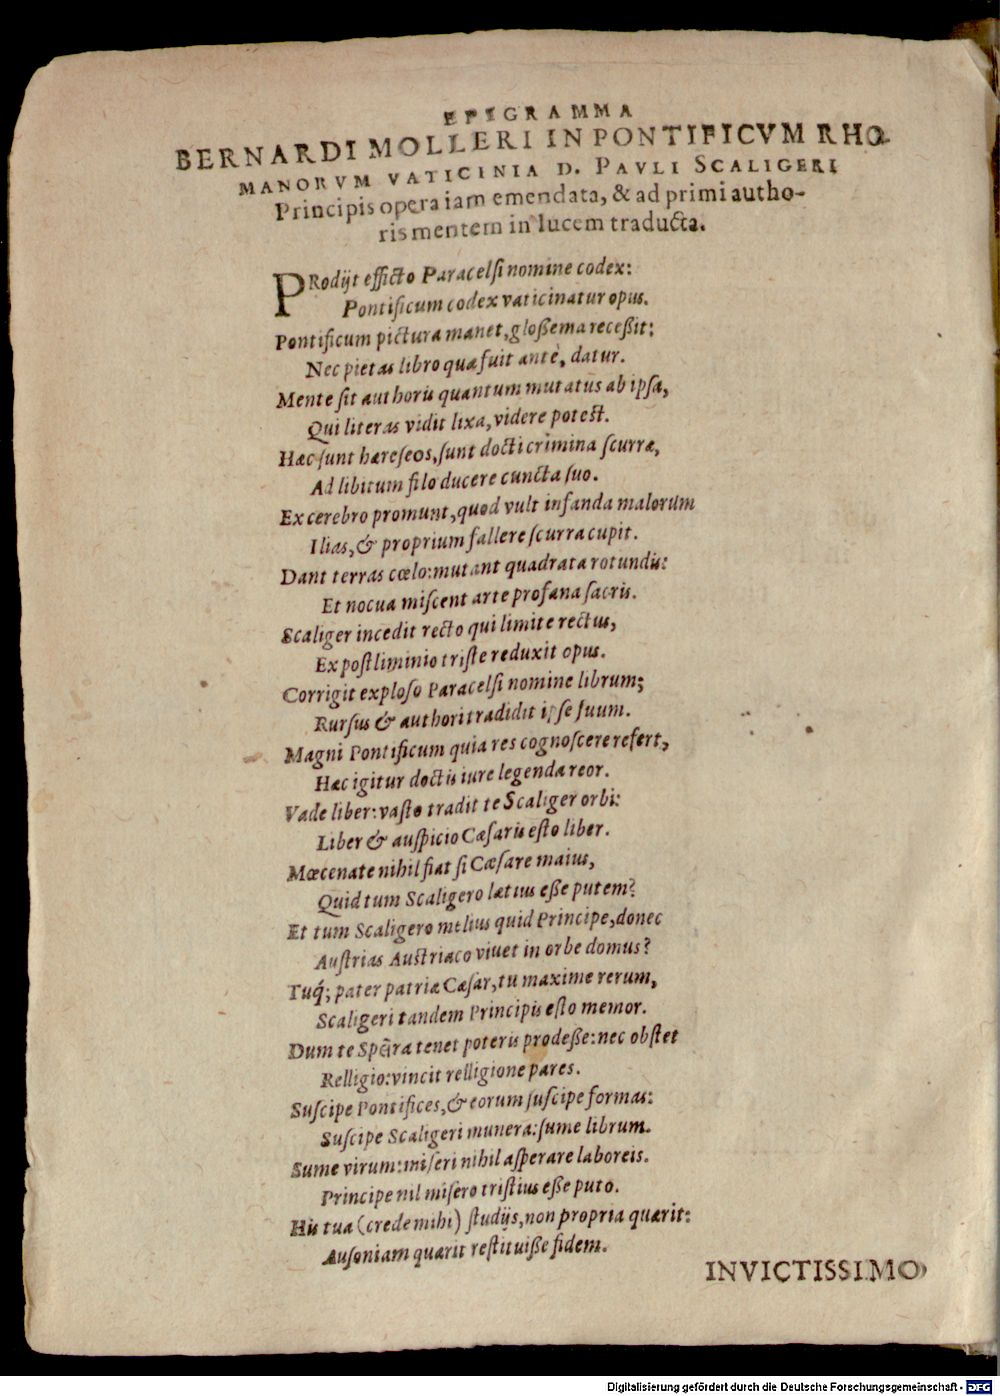 EPIGRAMMA
BERNARDI MOLLERI IN PONTIFICVM RHO-
MANORVM VATICINIA D. PAVLI SCALIGERI
Principis opera iam emendata, & ad primi autho-
ris mentem in lucem traducta.
PRodijt efficto Paracelsi nomine codex:
Pontificum codex vaticinatur opus.
Pontificum pictura manet, gloßema receßit:
Nec pietas libro quæ fuit antè, datur.
Mente sit authoris quantum mutatus ab ipsa,
Qui literas vidit lixa, videre potest.
Hæc sunt hæreseos, sunt docti crimina scurræ,
Ad libitum filo ducere cuncta suo.
Ex cerebro promunt, quod vult infanda malorum
Ilias, & proprium fallere scurra cupit.
Dant terras cœlo: mutant quadrata rotundis:
Et nocua miscent arte profana sacris.
Scaliger incedit recto qui limite rectus,
Ex postliminio triste reduxit opus.
Corrigit exploso Paracelsi nomine librum;
Rursus & authori tradidit ipse suum.
Magni Pontificum quia res cognoscere refert,
Hæc igitur doctis iure legenda reor.
Vade liber: vasto tradit te Scaliger orbi:
Liber & auspicio Cæsaris esto liber.
Mœcenate nihil fiat si Cæsare maius,
Quid tum Scaligero lætius eße putem?
Et tum Scaligero melius quid Principe, donec
Austrias Austriaco viuet in orbe domus?
Tuq́; pater patriæ Cæsar, tu maxime rerum,
Scaligeri tandem Principis esto memor.
Dum te Sphæra tenet poteris prodeße: nec obstet
Relligio: vincit relligione pares.
Suscipe Pontifices, & eorum suscipe formas:
Suscipe Scaligeri munera: sume librum.
Sume virum: miseri nihil asperare laboreis.
Principe nil misero tristius eße puto.
His tua (crede mihi) studijs, non propria quærit:
Ausoniam quærit restituiße fidem.
INVICTISSIMO
Digitalisierung gefördert durch die Deutsche Forschungsgemeinschaft - DFG